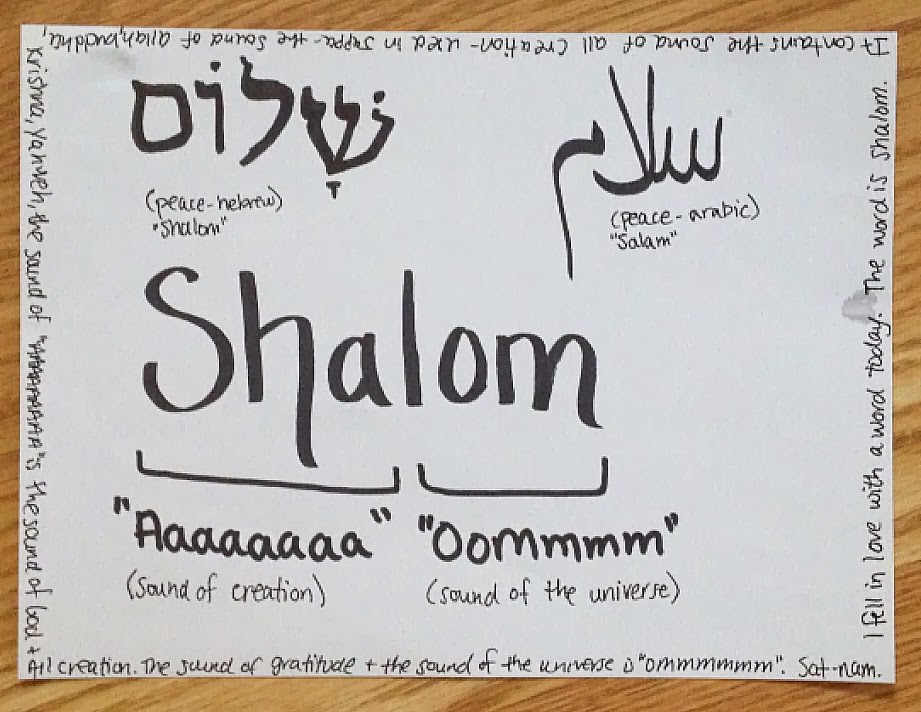 שָׁלוֹם
(peace-hebrew)
"Shalom"
سلام
(peace-arabic)
"Salam"
Shalom
"Aaaaaaaa" "Oommmm"
(sound of creation) (sound of the universe)
I fell in love with a word today. The word is shalom.
It contains the sound of all creation-used in Jappa-the sound of allah, buddha,
Krishna, Yahweh, the sound of "AAAAAAAA" is the sound of God +
All creation. The sound of gratitude + the sound of the universe is "ommmmmm". Sat-nam.